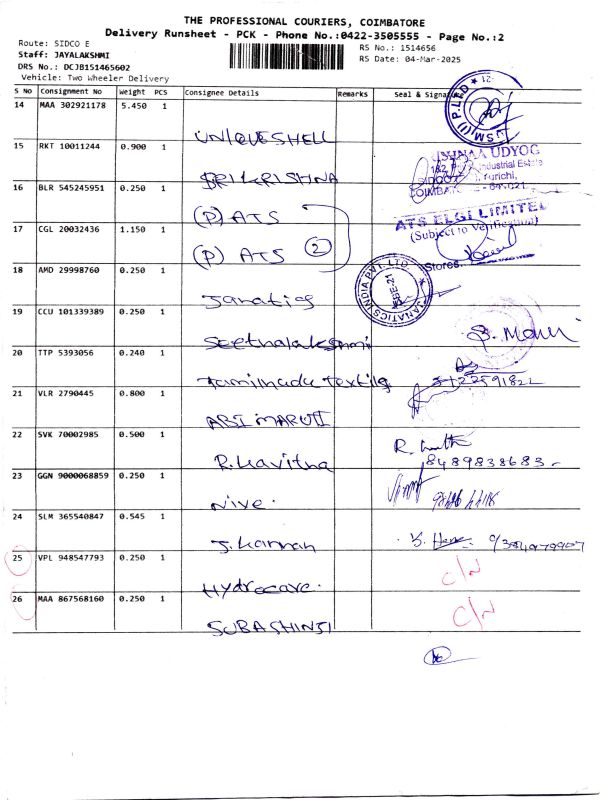 THE PROFESSIONAL COURIERS, COIMBATORE
Delivery Runsheet - PCK - Phone No.:0422-3505555 - Page No.:2
Route: SIDCO E
RS No.: 1514656
Staff: JAYALAKSHMI
RS Date: 04-Mar-2025
DRS No.: DCJB151465602
Vehicle: Two Wheeler Delivery
S No Consignment No Weight PCS Consignee Details Remarks Seal &
14 MAA 302921178 5.450 1 UNIQUESHELL
15 RKT 10011244 0.900 1 SRI KRISHNA
UDYOG
Industrial Estate
16 BLR 545245951 0.250 1 (P) ATS
ATS ELGI LIMITED
(Subject to Verification)
17 CGL 20032436 1.150 1 (P) ATS (2)
Stores
18 AMD 29998760 0.250 1 Janatics
JANATICS INDIA PVT. LTD.
19 CCU 101339389 0.250 1 Seethalakshmi
20 TTP 5393056 0.240 1 Tamilnadu Textils
21 VLR 2790445 0.800 1 ABI MARUTI
22 SVK 70002985 0.500 1 R.Kavitha
8489838683
23 GGN 9000068859 0.250 1 Nive.
24 SLM 365540847 0.545 1 J. Kannan
25 VPL 948547793 0.250 1 Hydrocare. C/N
26 MAA 867568160 0.250 1 SUBASHINI C/N